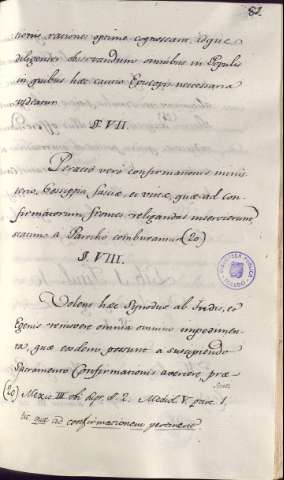 82.
tionis rationes optime cognoscant, idque
diligenter observandum omnibus in Populis
in quibus hæc cautio Episcopis necessaria
videatur.
§. VII.
Peracto vero confirmationis minis-
terio, Gossypia, fasciæ, et vittæ, quæ ad con-
firmatorum frontes religandas inservierunt
statim a Parocho comburantur (20)
§. VIII.
Volens hæc Synodus ab Indis, et
Egenis removere omnia omnino impedimen-
ta, quæ eosdem possunt a suscipiendo
Sacramento Confirmationis avertere præ-
(20) Mexic. III. §. 2. Mediol. V. part. 1.
tit. quæ ad confirmationem pertinent